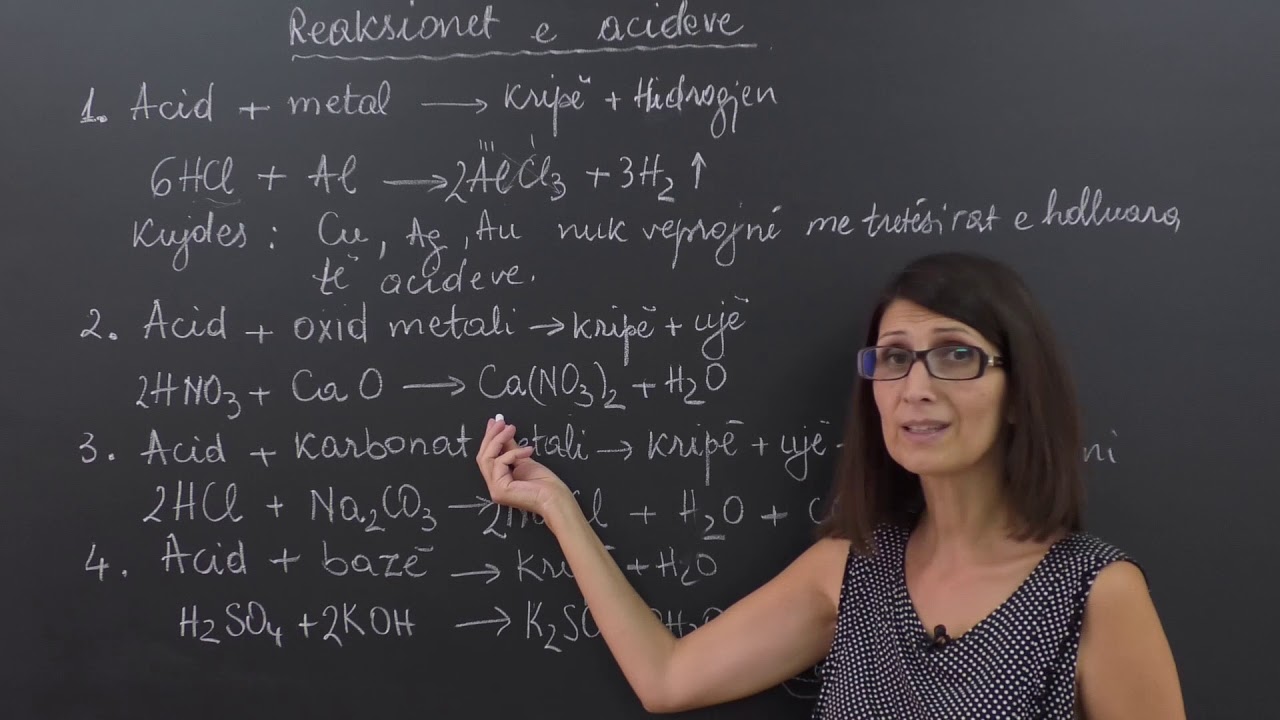 Reaksionet e acideve
1. Acid + metal → kripë + Hidrogjen
6HCl + Al → 2AlCl₃ + 3H₂ ↑
Kujdes : Cu, Ag, Au nuk veprojnë me tretësirat e holluara
të acideve.
2. Acid + oxid metali → kripë + ujë
2HNO₃ + CaO → Ca(NO₃)₂ + H₂O
3. Acid + karbonat → kripë + ujë
2HCl + Na₂CO₃ → + H₂O +
4. Acid + bazë → + H₂O
H₂SO₄ + 2KOH →